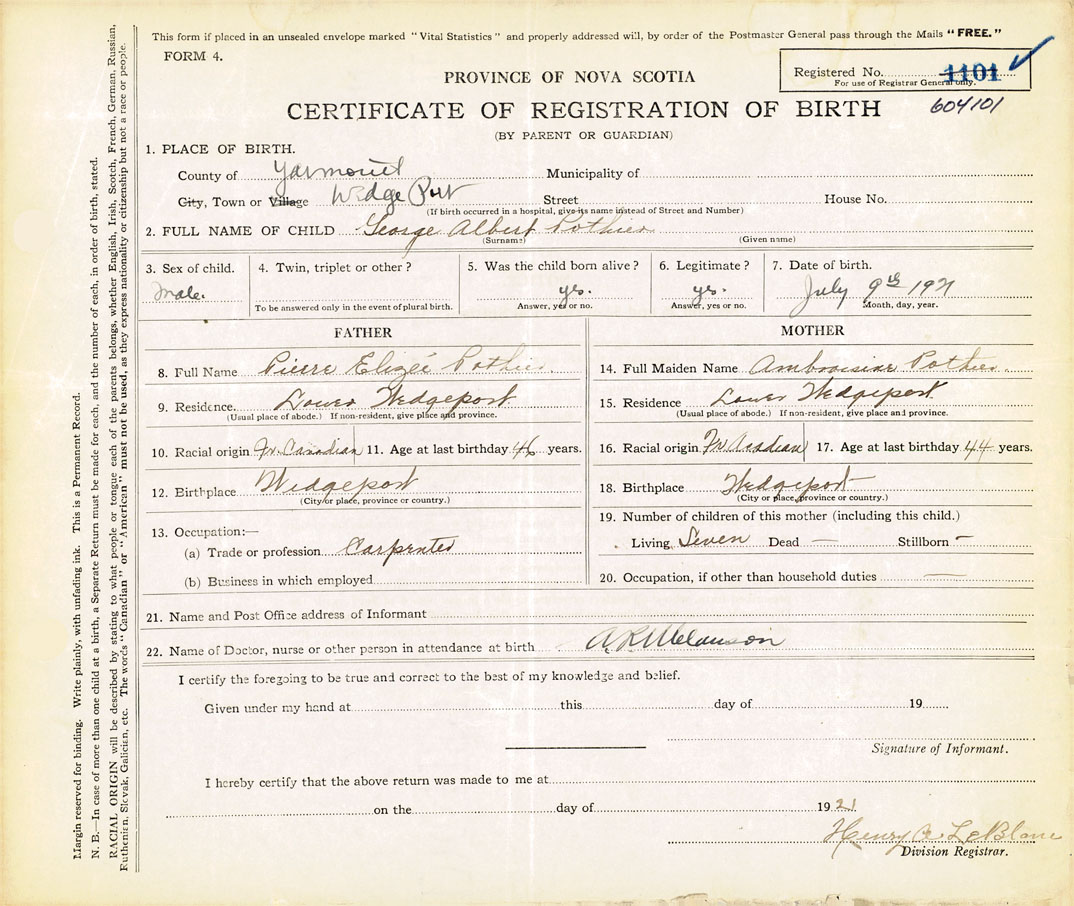 This form if placed in an unsealed envelope marked "Vital Statistics" and properly addressed will, by order of the Postmaster General pass through the Mails "FREE."
FORM 4.
Registered No. 1101
For use of Registrar General only.
604101
PROVINCE OF NOVA SCOTIA
CERTIFICATE OF REGISTRATION OF BIRTH
(BY PARENT OR GUARDIAN)
1. PLACE OF BIRTH.
County of Yarmouth Municipality of
City, Town or Village Wedge Port Street House No.
(If birth occurred in a hospital, give its name instead of Street and Number)
2. FULL NAME OF CHILD George Albert Pothier
(Surname) (Given name)
3. Sex of child. 4. Twin, triplet or other? 5. Was the child born alive? 6. Legitimate? 7. Date of birth.
Male. yes. yes. July 9th 1921
To be answered only in the event of plural birth. Answer, yes or no. Answer, yes or no. Month, day, year.
FATHER MOTHER
8. Full Name Pierre Elizée Pothier. 14. Full Maiden Name Ambroisine Pothier.
9. Residence. Lower Wedgeport 15. Residence Lower Wedgeport
(Usual place of abode.) If non-resident, give place and province. (Usual place of abode.) If non-resident, give place and province.
10. Racial origin Fr. Canadian 11. Age at last birthday 46 years. 16. Racial origin Fr Acadian 17. Age at last birthday 44 years.
12. Birthplace Wedgeport 18. Birthplace Wedgeport
(City or place, province or country.) (City or place, province or country.)
13. Occupation:— 19. Number of children of this mother (including this child.)
(a) Trade or profession Carpenter Living Seven Dead — Stillborn –
(b) Business in which employed 20. Occupation, if other than household duties —
21. Name and Post Office address of Informant
22. Name of Doctor, nurse or other person in attendance at birth A. R. Melanson
I certify the foregoing to be true and correct to the best of my knowledge and belief.
Given under my hand at this day of 19
Signature of Informant.
I hereby certify that the above return was made to me at
on the day of 1921
Henry A LeBlanc
Division Registrar.
Margin reserved for binding. Write plainly, with unfading ink. This is a Permanent Record.
N. B.—In case of more than one child at a birth, a Separate Return must be made for each, and the number of each, in order of birth, stated.
RACIAL ORIGIN will be described by stating to what people or tongue each of the parents belongs, whether English, Irish, Scotch, French, German, Russian,
Ruthenian, Slovak, Galician, etc. The words "Canadian" or "American" must not be used, as they express nationality or citizenship but not a race or people.